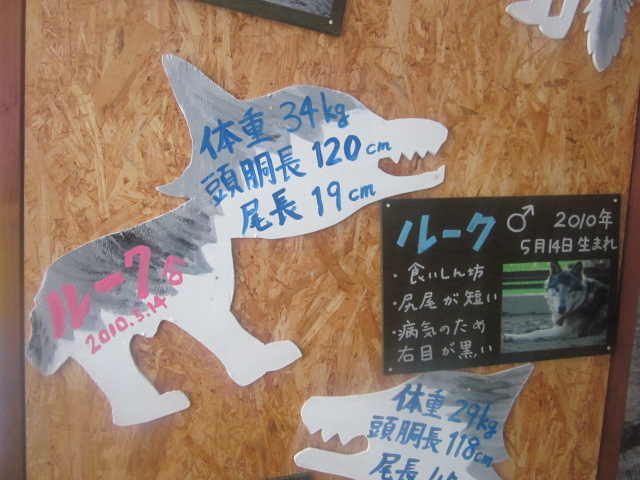 体重 34kg
頭胴長 120cm
尾長 19cm
ルーク♂
2010.5.14
ルーク ♂ 2010年
5月14日生まれ
・食いしん坊
・尻尾が短い
・病気のため
右目が黒い
体重 29kg
頭胴長 118cm
尾長